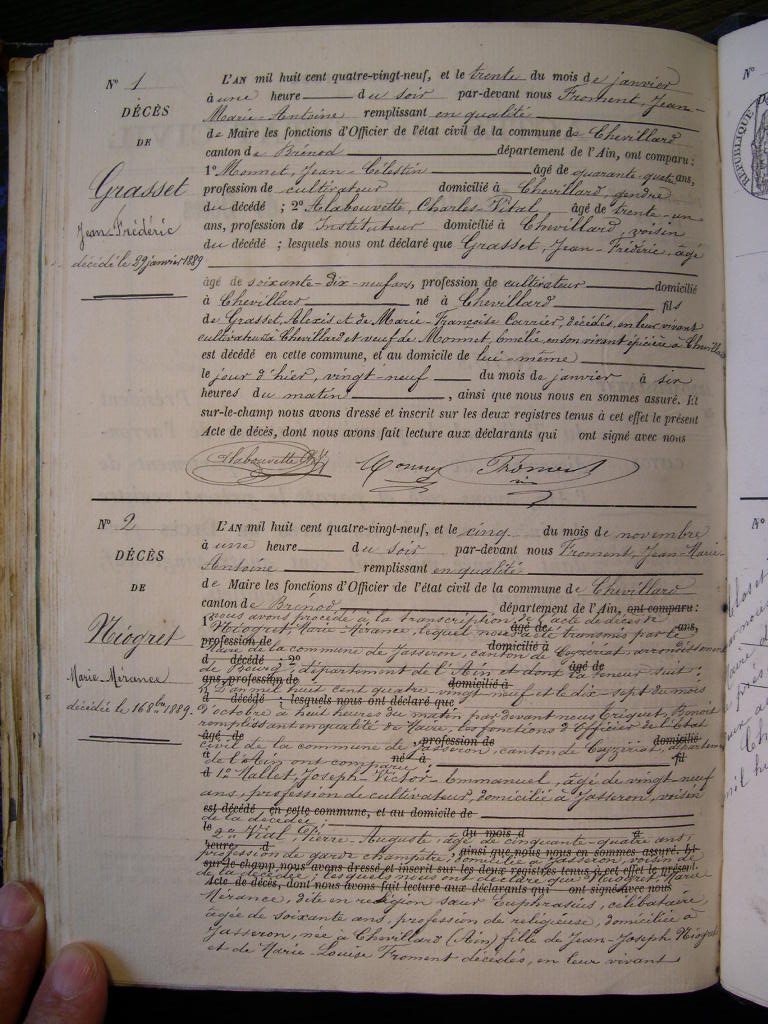 N° 1
DÉCÈS
DE
Grasset
Jean-Frédéric
décédé le 29 janvier 1889
L'AN mil huit cent quatre-vingt-neuf, et le trente du mois de janvier
à une heure du soir par-devant nous Froment, Jean-
Marie-Antoine remplissant en qualité
de Maire les fonctions d'Officier de l'état civil de la commune de Chevillard
canton de Brénod département de l'Ain, ont comparu :
1° Monnet, Jean-Célestin âgé de quarante-quatre ans,
profession de cultivateur domicilié à Chevillard, gendre
du décédé ; 2° Alabouvette, Charles-Vital âgé de trente-un
ans, profession de Instituteur domicilié à Chevillard, voisin
du décédé ; lesquels nous ont déclaré que Grasset, Jean-Frédéric, âgé
âgé de soixante-dix-neuf ans, profession de cultivateur domicilié
à Chevillard né à Chevillard fils
de Grasset, Alexis et de Marie-Françoise Carrier, décédés, en leur vivant
cultivateurs à Chevillard et veuf de Monnet, Emélie, en son vivant épicière à Chevillard
est décédé en cette commune, et au domicile de lui-même
le jour d'hier, vingt-neuf du mois de janvier à six
heures du matin, ainsi que nous nous en sommes assuré. Et
sur-le-champ nous avons dressé et inscrit sur les deux registres tenus à cet effet le présent
Acte de décès, dont nous avons fait lecture aux déclarants qui ont signé avec nous
Alabouvette Monnet Froment
N° 2
DÉCÈS
DE
Niogret
Marie-Mérance
décédée le 16 8bre 1889.
L'AN mil huit cent quatre-vingt-neuf, et le cinq du mois de novembre
à une heure du soir par-devant nous Froment, Jean-Marie-
Antoine remplissant en qualité
de Maire les fonctions d'Officier de l'état civil de la commune de Chevillard
canton de Brénod, département de l'Ain, ont comparu :
nous avons procédé à la transcription de l'acte de décès de
Niogret, Marie-Mérance, lequel nous a été transmis par le
Maire de la commune de Jasseron, canton de Ceyzériat, arrondissement
de Bourg, département de l'Ain et dont la teneur suit :
L'an mil huit cent quatre-vingt-neuf et le dix-sept du mois
d'octobre à huit heures du matin par devant nous Criquet, Benoit
remplissant en qualité de Maire, les fonctions d'Officier de l'Etat
civil de la commune de Jasseron, canton de Ceyzériat, département
de l'Ain ont comparu :
1° Mallet, Joseph-Victor-Emmanuel, âgé de vingt-neuf
ans, profession de cultivateur, domicilié à Jasseron, voisin
de la décédée ;
2° Vial, Pierre-Auguste, âgé de cinquante-quatre ans,
profession de garde champêtre, domicilié à Jasseron, voisin de
de la décédée ; lesquels nous ont déclaré que Niogret, Marie
Mérance, dite en religion sœur Euphrasius, célibataire,
âgée de soixante ans, profession de religieuse, domiciliée à
Jasseron, née à Chevillard (Ain) fille de Jean-Joseph Niogret
et de Marie-Louise Froment décédés, en leur vivant
RÉPUBLIQUE
N°